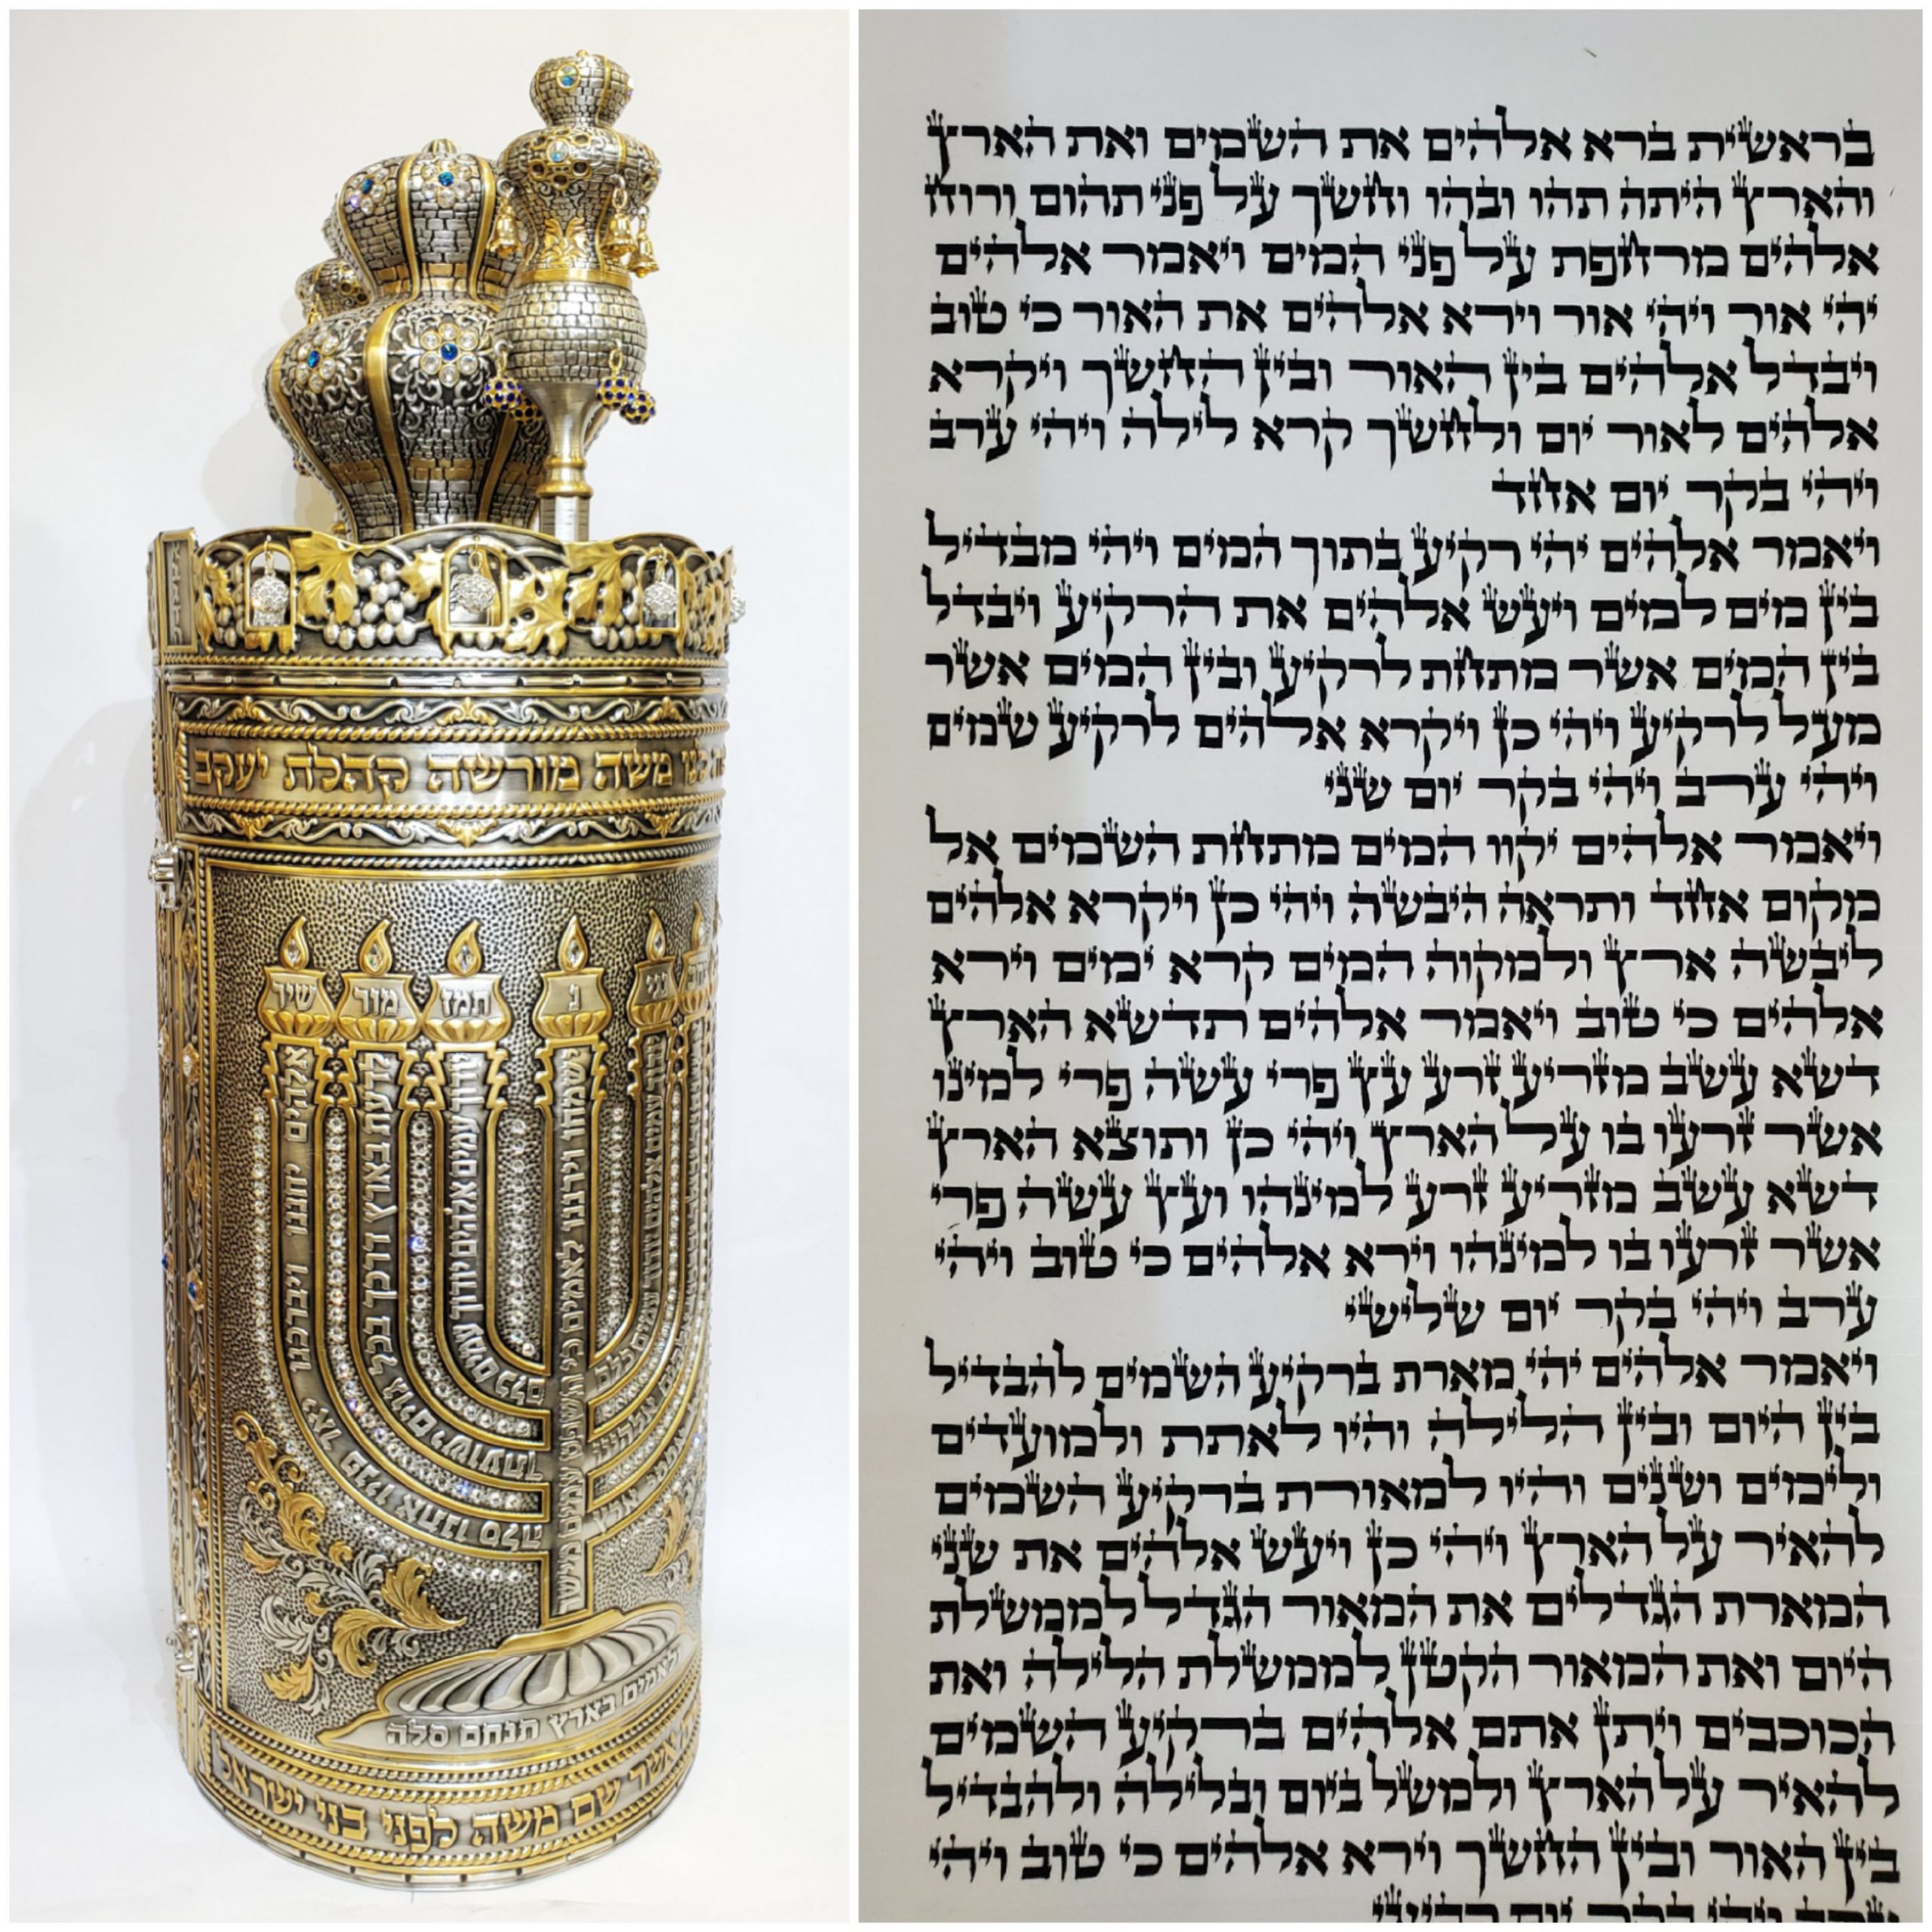 משה מורשה קהלת יעקב
שיר מור תמז נ
אלהים יחננו ויברכנו יאר פניו אתנו סלה
לדעת בארץ דרכך בכל גוים ישועתך
יודוך עמים אלהים יודוך עמים כלם
ישמחו וירננו לאמים כי תשפט עמים מישר
לאמים בארץ תנחם סלה
אשר שם משה לפני בני ישראל
בראשית ברא אלהים את השמים ואת הארץ
והארץ היתה תהו ובהו וחשך על פני תהום ורוח
אלהים מרחפת על פני המים ויאמר אלהים
יהי אור ויהי אור וירא אלהים את האור כי טוב
ויבדל אלהים בין האור ובין החשך ויקרא
אלהים לאור יום ולחשך קרא לילה ויהי ערב
ויהי בקר יום אחד
ויאמר אלהים יהי רקיע בתוך המים ויהי מבדיל
בין מים למים ויעש אלהים את הרקיע ויבדל
בין המים אשר מתחת לרקיע ובין המים אשר
מעל לרקיע ויהי כן ויקרא אלהים לרקיע שמים
ויהי ערב ויהי בקר יום שני
ויאמר אלהים יקוו המים מתחת השמים אל
מקום אחד ותראה היבשה ויהי כן ויקרא אלהים
ליבשה ארץ ולמקוה המים קרא ימים וירא
אלהים כי טוב ויאמר אלהים תדשא הארץ
דשא עשב מזריע זרע עץ פרי עשה פרי למינו
אשר זרעו בו על הארץ ויהי כן ותוצא הארץ
דשא עשב מזריע זרע למינהו ועץ עשה פרי
אשר זרעו בו למינהו וירא אלהים כי טוב ויהי
ערב ויהי בקר יום שלישי
ויאמר אלהים יהי מארת ברקיע השמים להבדיל
בין היום ובין הלילה והיו לאתת ולמועדים
ולימים ושנים והיו למאורת ברקיע השמים
להאיר על הארץ ויהי כן ויעש אלהים את שני
המארת הגדלים את המאור הגדל לממשלת
היום ואת המאור הקטן לממשלת הלילה ואת
הכוכבים ויתן אתם אלהים ברקיע השמים
להאיר על הארץ ולמשל ביום ובלילה ולהבדיל
בין האור ובין החשך וירא אלהים כי טוב ויהי
ערב ויהי בקר יום רביעי